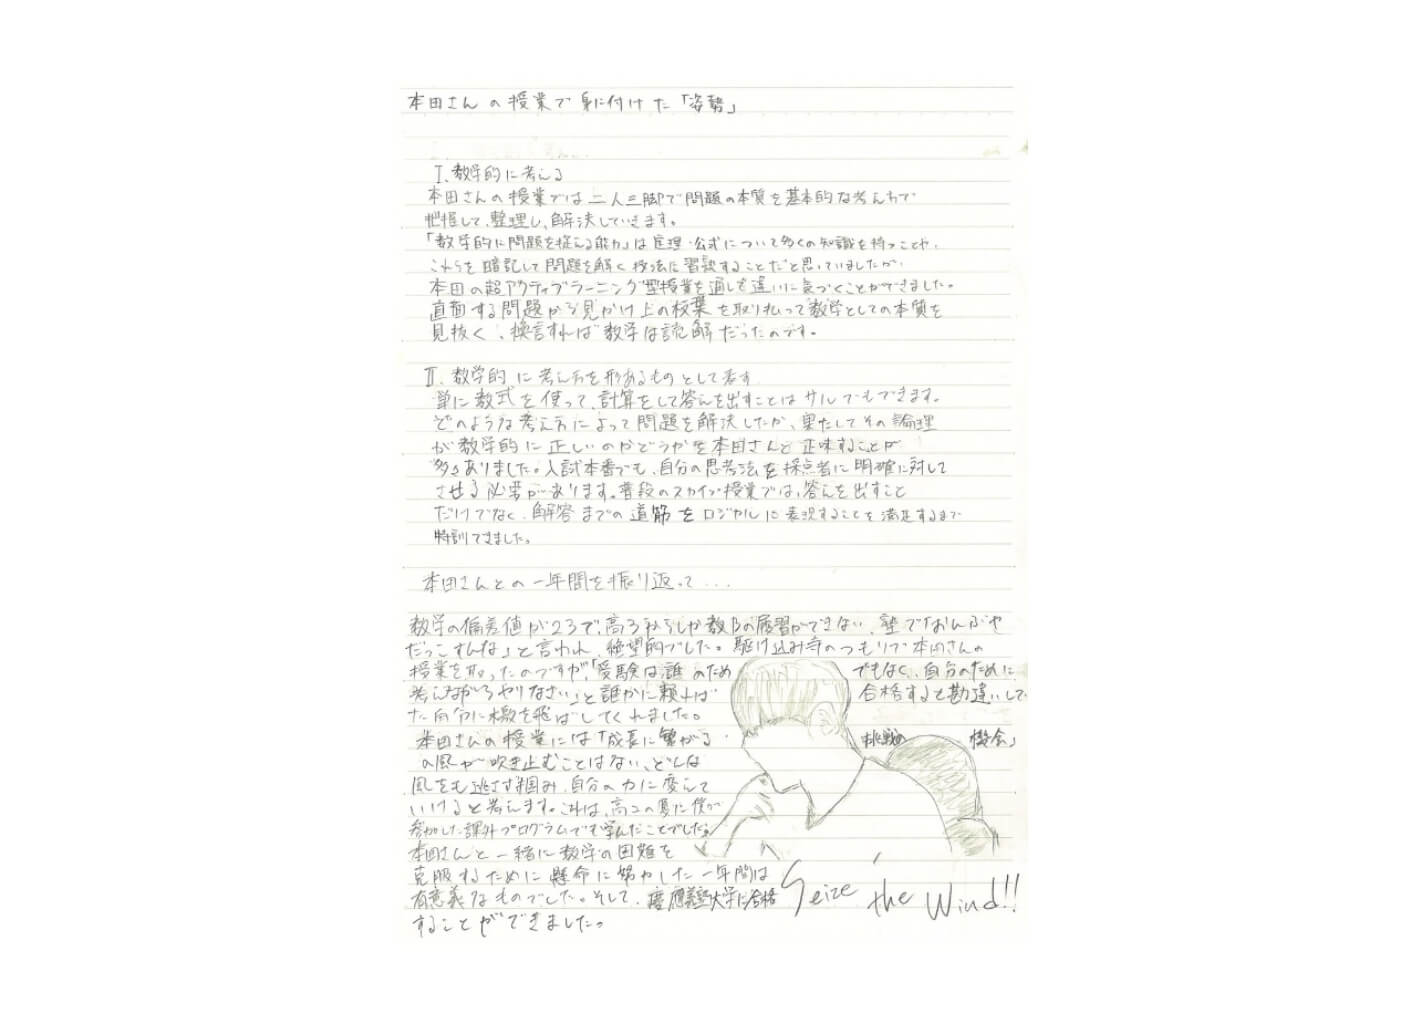 本田さんの授業で身に付けた「姿勢」
I. 数学的に考える
本田さんの授業では二人三脚で問題の本質を基本的な考え方で
把握して、整理し、解決していきます。
「数学的に問題を捉える能力」は定理・公式について多くの知識を持つことや、
これらを暗記して問題を解く技法に習熟することだと思っていましたが、
本田の超アクティブラーニング型授業を通して違いに気づくことができました。
直面する問題から見かけ上の枝葉を取り払って数学としての本質を
見抜く、換言すれば数学は読解だったのです。
II. 数学的に考え方を形あるものとして表す
単に数式を使って、計算をして答えを出すことはサルでもできます。
どのような考え方によって問題を解決したか、果たしてその論理
が数学的に正しいのかどうかを本田さんと正味することが
多々ありました。入試本番でも、自分の思考法を採点者に明確に対して
させる必要があります。普段のスカイプ授業では、答えを出すこと
だけでなく、解答までの道筋をロジカルに表現することを満足するまで
特訓できました。
本田さんとの一年間を振り返って...
数学の偏差値が23で、高3からしか数Bの履習ができない、塾で「なんぶや
だっこすんな」と言われ、絶望的でした。駆け込み寺のつもりで本田さんの
授業を取ったのですが、「受験は誰のため でもなく、自分のために
考えながらやりなさい」と誰かに頼れば 合格すると勘違いして
た自分に檄を飛ばしてくれました。
本田さんの授業には「成長に繋がる 挑戦の 機会」
の風が吹き止むことはない、どんな
風をも逃さず掴み、自分の力に変えて
いけると考えます。これは、高二の夏に僕が
参加した課外プログラムでも学んだことでした。
本田さんと一緒に数学の困難を
克服するために懸命に努力した一年間は
有意義なものでした。そして、慶應義塾大学に合格
することができました。
Seize the Wind!!